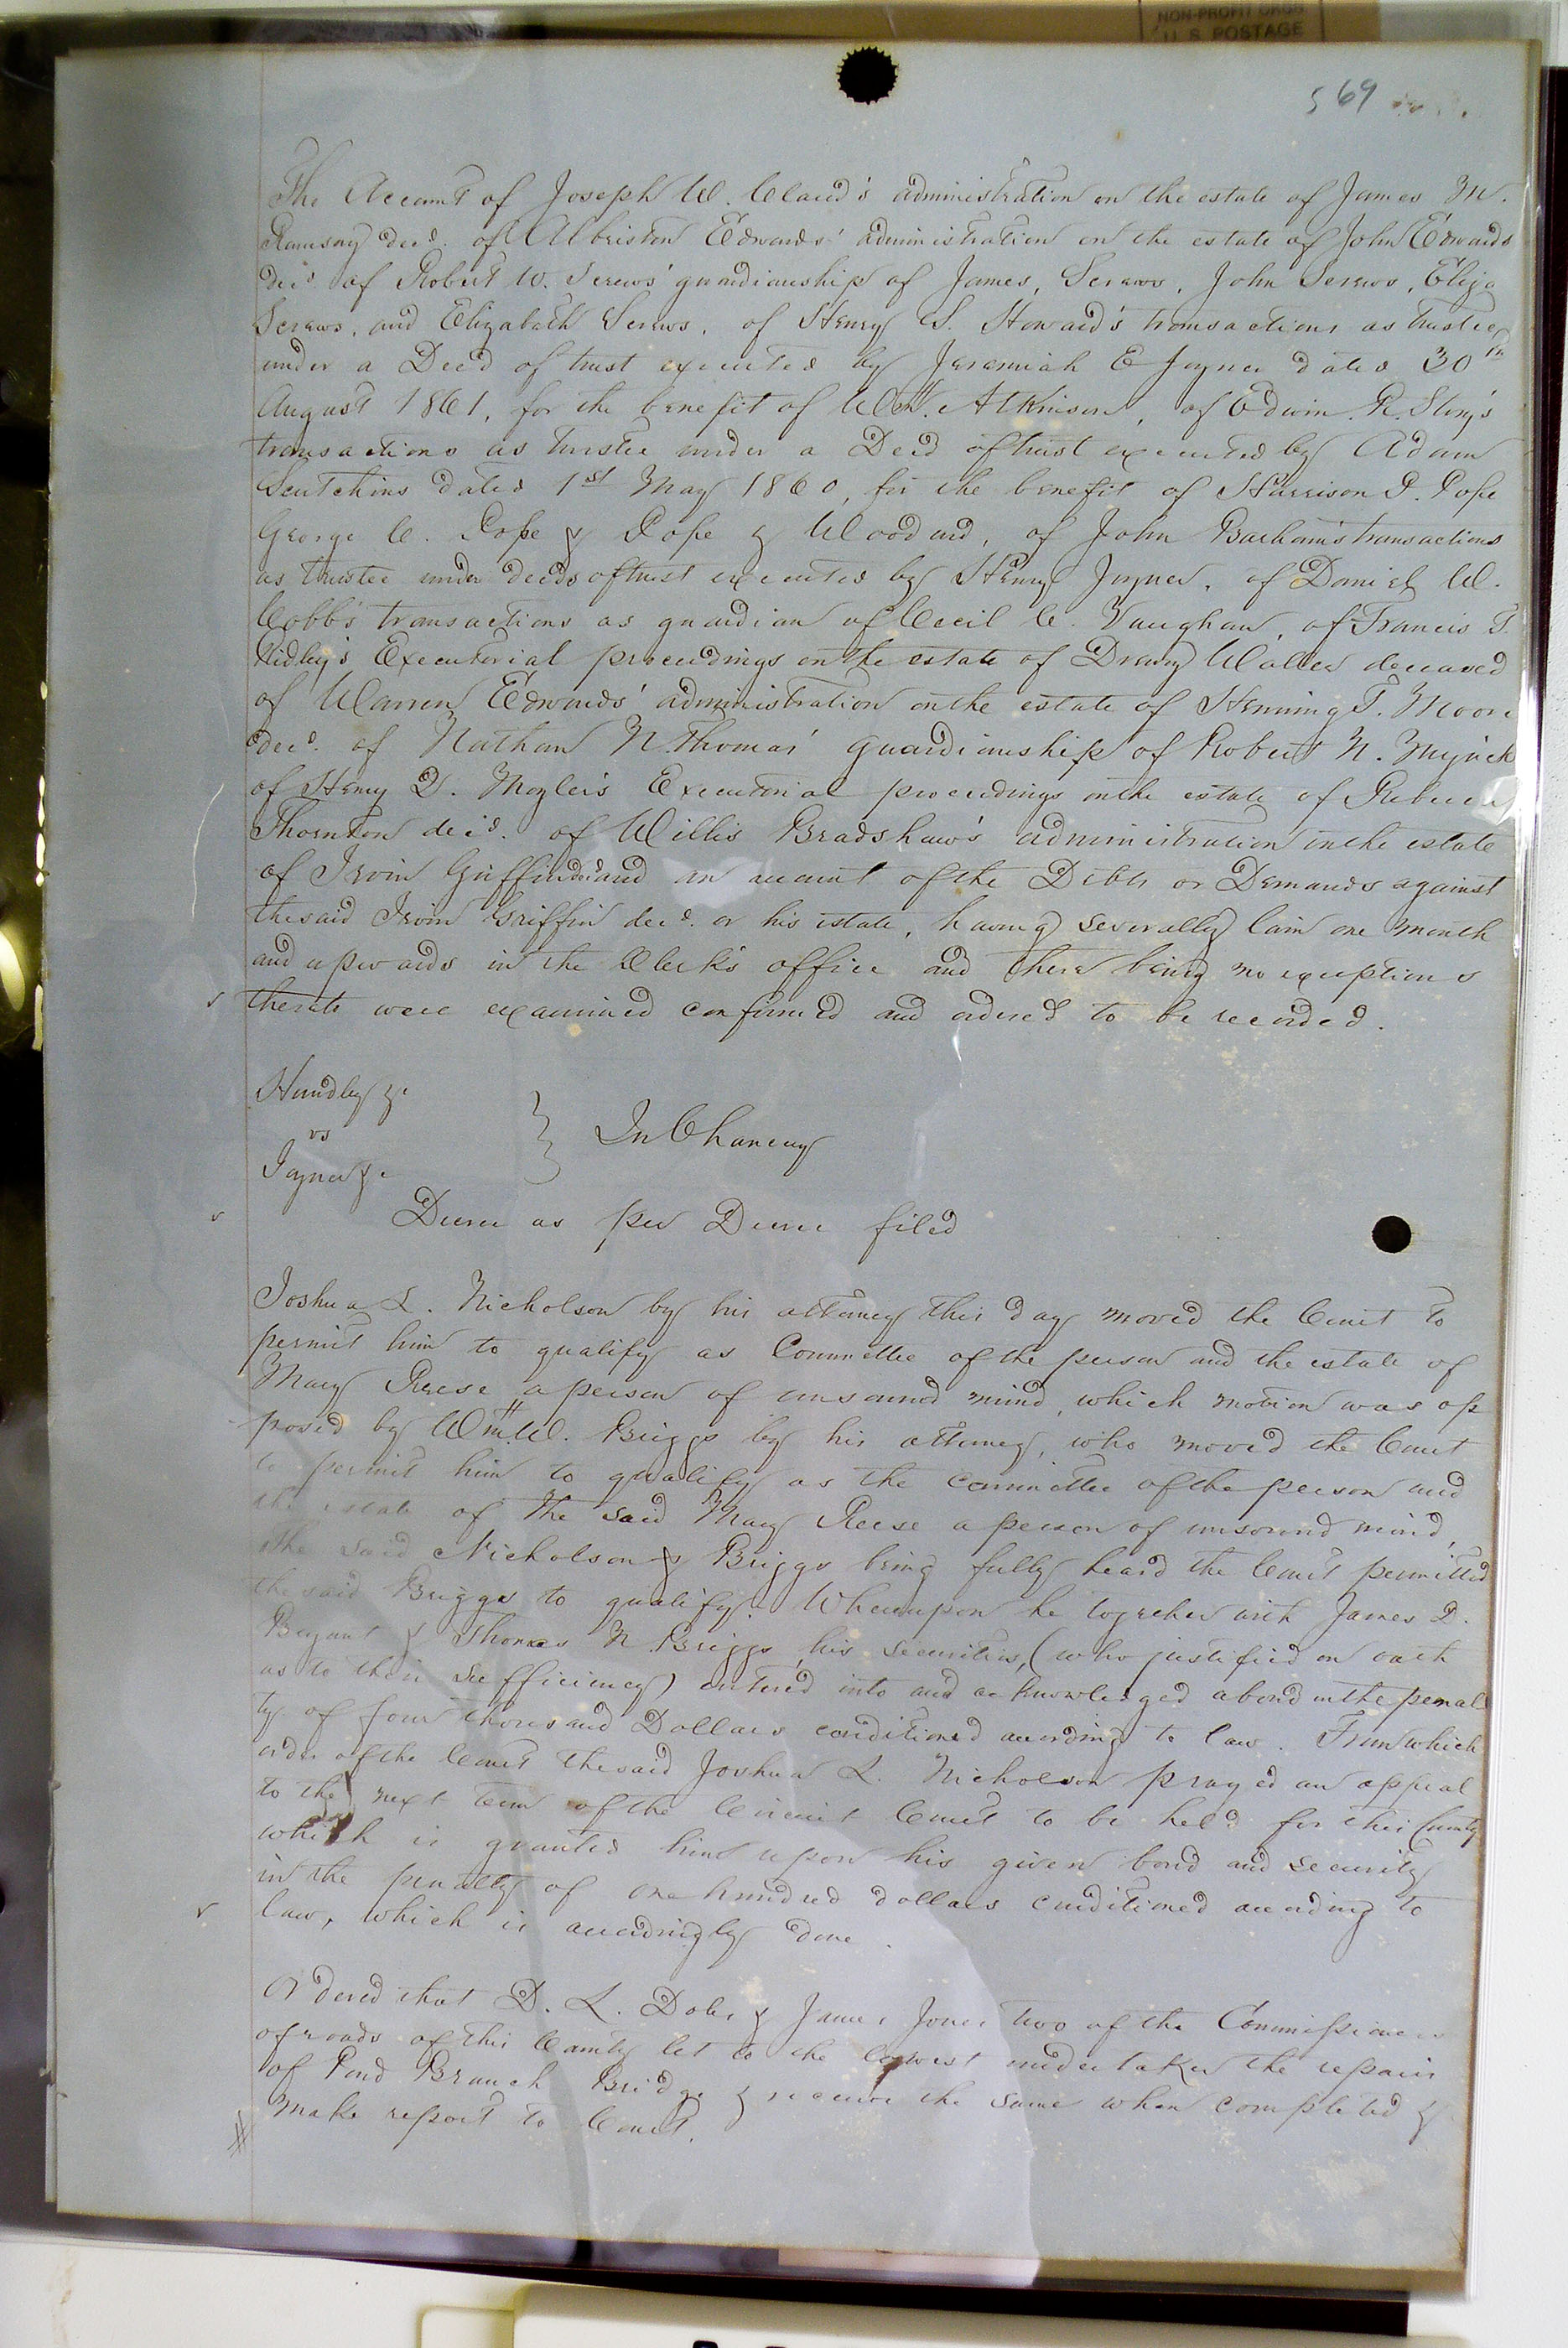 NON-PROFIT ORG
U. S. POSTAGE
569
The Account of Joseph W. Claud's administration on the estate of James M.
Ramsay decd. of Albriston Edwards' administration on the estate of John Edwards
decd of Robert W. Screws' guardianship of James, Screws, John Screws, Eliza
Screws, and Elizabeth Screws, of Henry S. Howard's transactions as trustee
under a Deed of trust executed by Jeremiah E Joyner dated 30th
August 1861, for the benefit of Wm. Atkinson, of Edwin R. Story's
transactions as trustee under a Deed of trust executed by Adam
Scutchins dated 1st May 1860, for the benefit of Harrison P. Pope
George C. Pope & Pope & Woodard, of John Barham's transactions
as trustee under deeds of trust executed by Henry Joyner, of Daniel W.
Cobb's transactions as guardian of Cecil C. Vaughan, of Francis T.
Ridley's Executorial proceedings on the estate of Drewry Waller deceased
of Warren Edwards' administration on the estate of Henning T. Moore
decd. of Nathan N. Thomas' guardianship of Robert N. Myrick
of Henry D. Moyler's Executorial proceedings on the estate of Rebecca
Thornton decd. of Willis Bradshaw's administration on the estate
of Irvin Griffin decd and an account of the Debts or Demands against
the said Irvin Griffin decd. or his estate, having severally lain one month
and upwards in the Clerk's office and there being no exceptions
thereto were examined confirmed and ordered to be recorded.
Hundley &c
vs
Joyner &c
} In Chancery
Decree as per Decree filed
Joshua L. Nicholson by his attorney this day moved the Court to
permit him to qualify as Committee of the person and the estate of
Mary Reese a person of unsound mind, which motion was op
posed by Wm. W. Briggs by his attorney, who moved the Court
to permit him to qualify as the committee of the person and
the estate of the said Mary Reese a person of unsound mind,
The said Nicholson & Briggs being fully heard the Court permitted
the said Briggs to qualify. Whereupon he together with James D.
Bryant & Thomas N. Briggs, his securities, (who justified on oath
as to their sufficiency) entered into and acknowledged a bond in the penal
ty of four thousand Dollars conditioned according to law. From which
order of the Court the said Joshua L. Nicholson prayed an appeal
to the next term of the Circuit Court to be held for this County
which is granted him upon his given bond and security
in the penalty of one hundred dollars conditioned according to
law, which is accordingly done.
Ordered that D. L. Doles & James Jones two of the Commissioners
of roads of this County let to the lowest undertaker the repairs
of Pond Branch Bridge & receive the same when completed &
make report to Court.